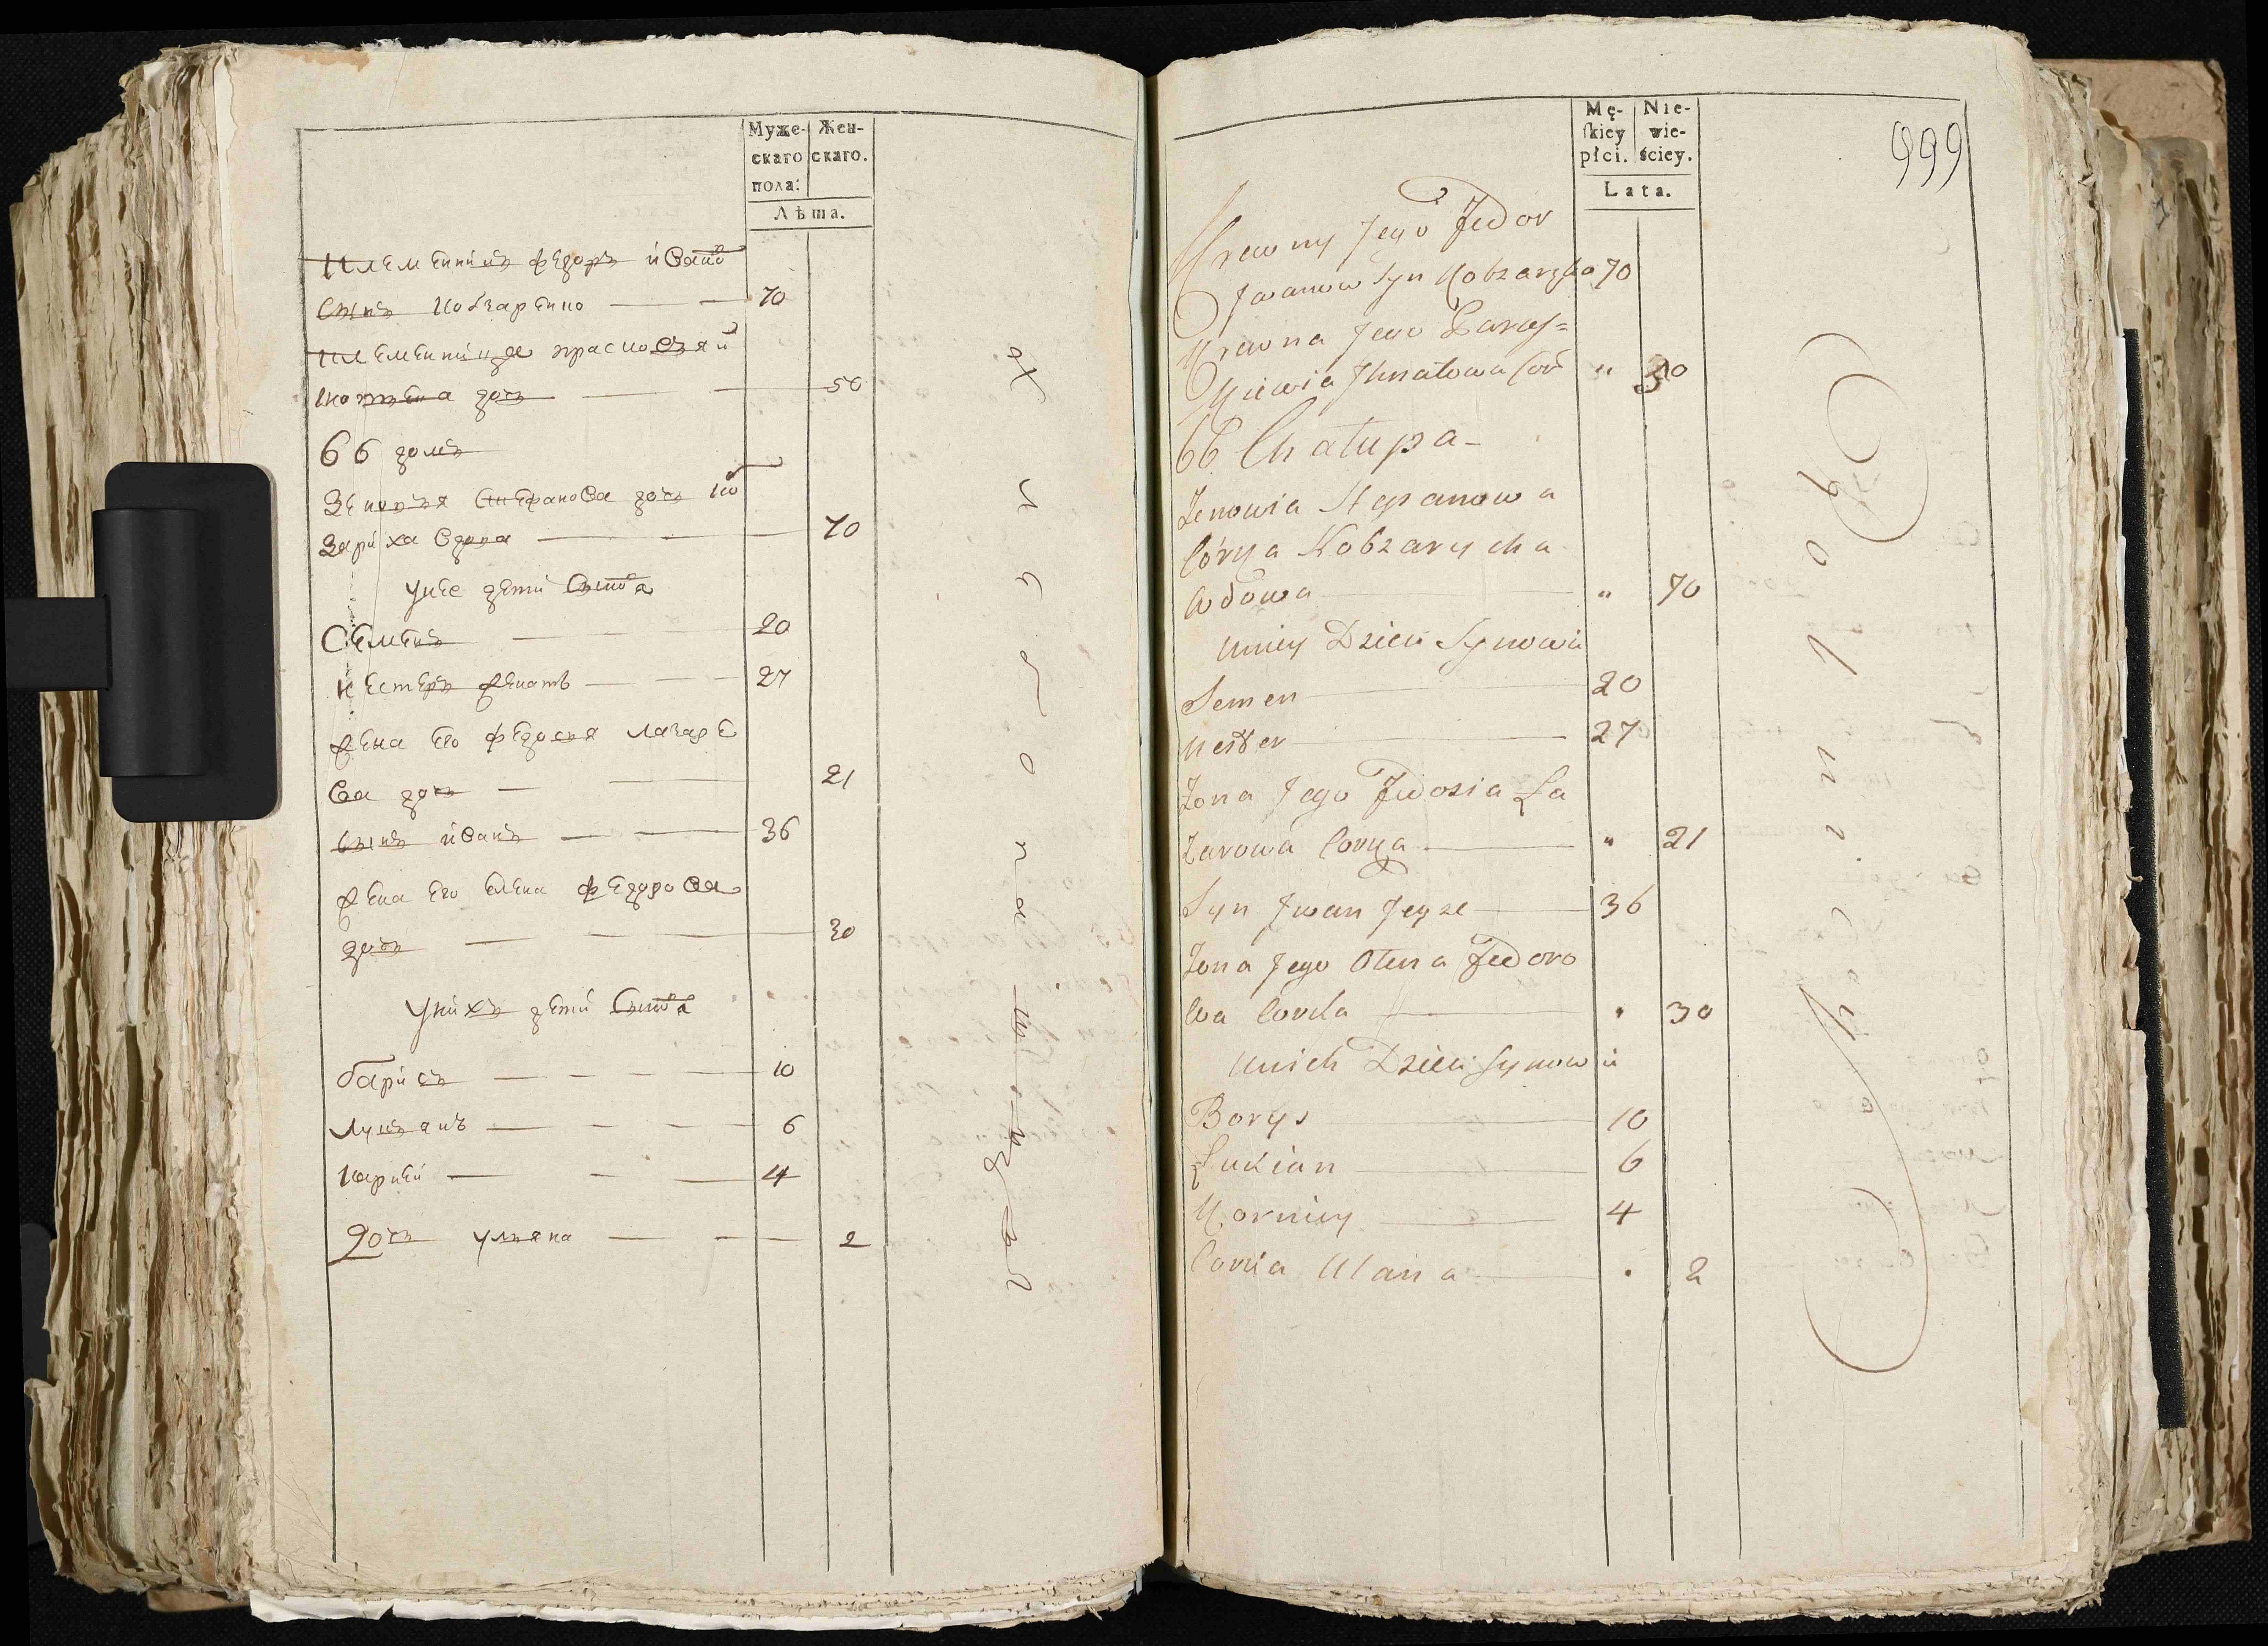 Муже-
скаго
пола:
Жен-
скаго.
Лѣта.
племенникъ федоръ иванο
сынъ кобзаренко 70
племенница прасковя и
дочь 50
66 домъ
Зеновъя стефанова дочь коб
зариха вдова 70
у нее дети сыновя
Семенъ 20
нестеръ женатъ 27
жена его федося лазаре
ва дочь 21
сынъ иванъ 36
жена его елена федорова
дочь 30
у нихъ дети сыновя
барисъ 10
лукъянъ 6
карней 4
дочь улъяна 2
Mę-
ſkiey
płci.
Nie-
wie-
ściey.
Lata.
999
Krewny Jego Fedor
Iwanow Syn Kobzarenko 70
Krewna Jego Paras=
kiewia Ihnatowa Cor " 30
66 Chałupa
Zenowia Stepanowa
Córka Kobzarycha
Wdowa " 70
U niey Dzieci Synowie
Semen 20
Nester 27
Żona Jego Fedosia Ła
Zarowa Corka " 21
Syn Iwan Jeyze 36
Żona Jego Olena Fedoro
Wa Corka " 30
U nich Dzieci Synowie
Borys 10
Łukian 6
Korniey 4
Corka Ulana 2